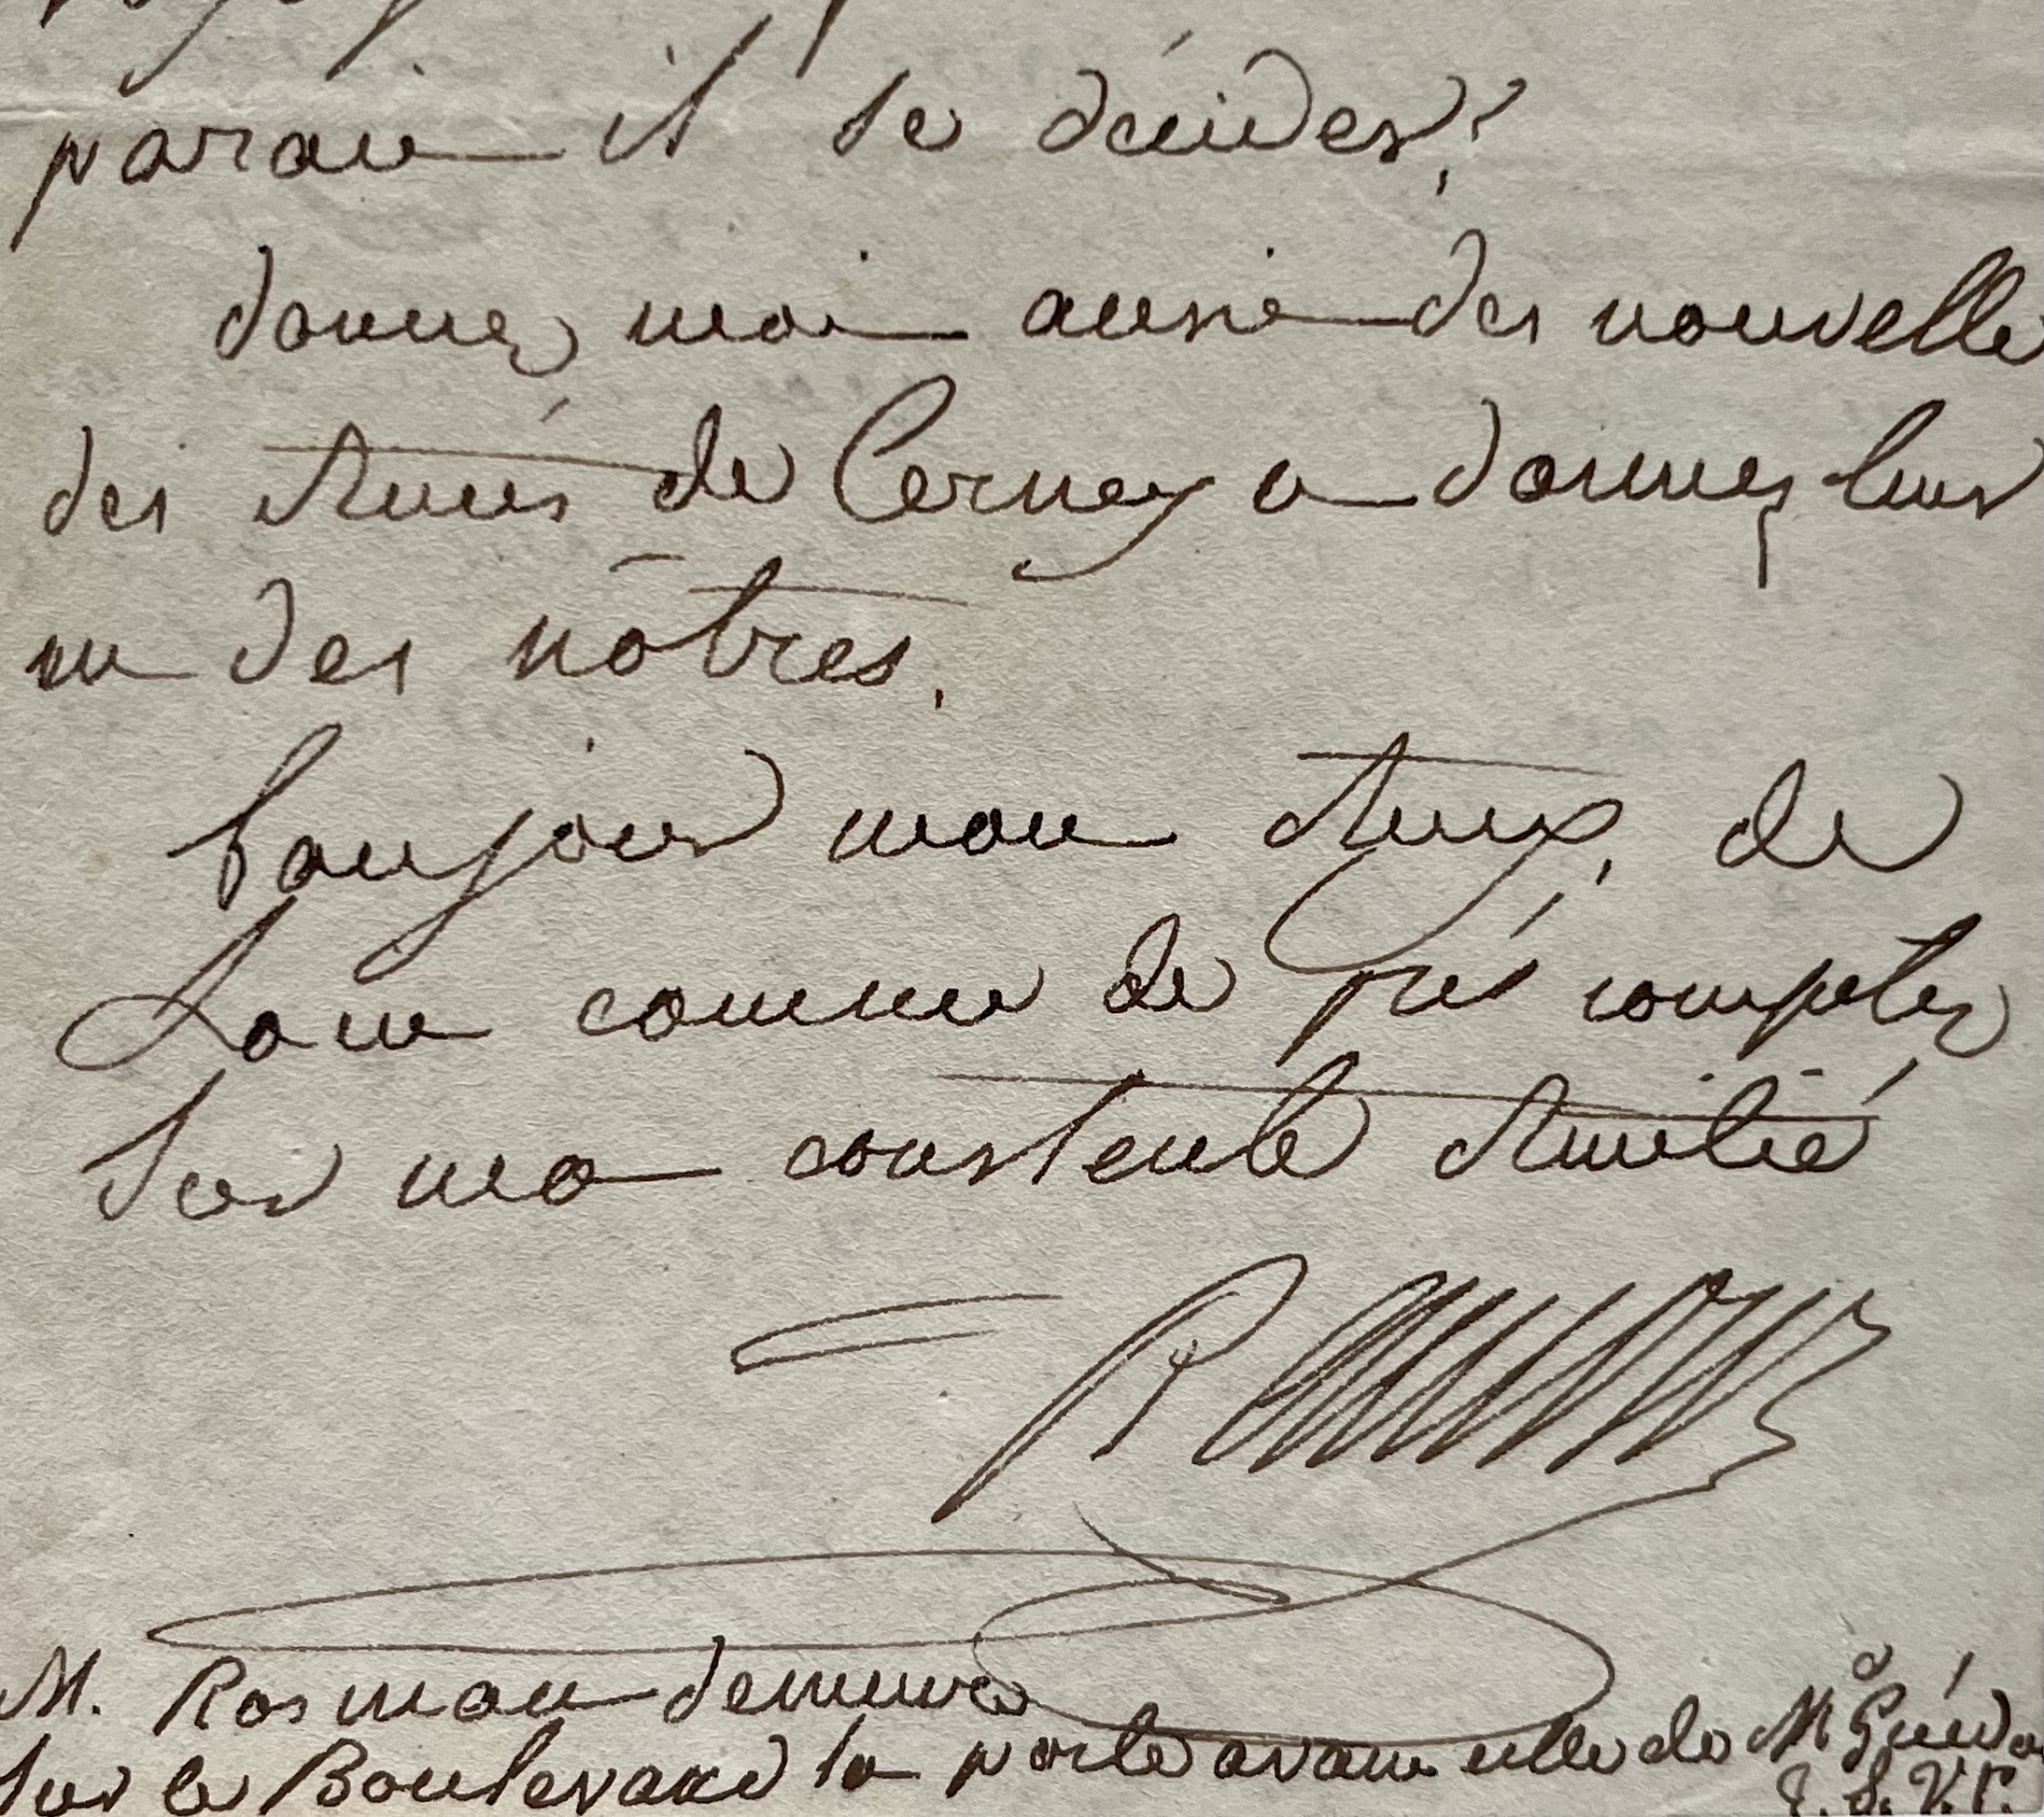 parait il se décider?
donnez moi aussi des nouvelle
des Amis de Cernay et donnez leur
en des nôtres.
bonjour mon Amy, de
Loin comme de prés comptez
sur ma constente Amitié
M. Rosman demeure
sur le Boulevard la porte avant celle de Md
T. S. V. P.